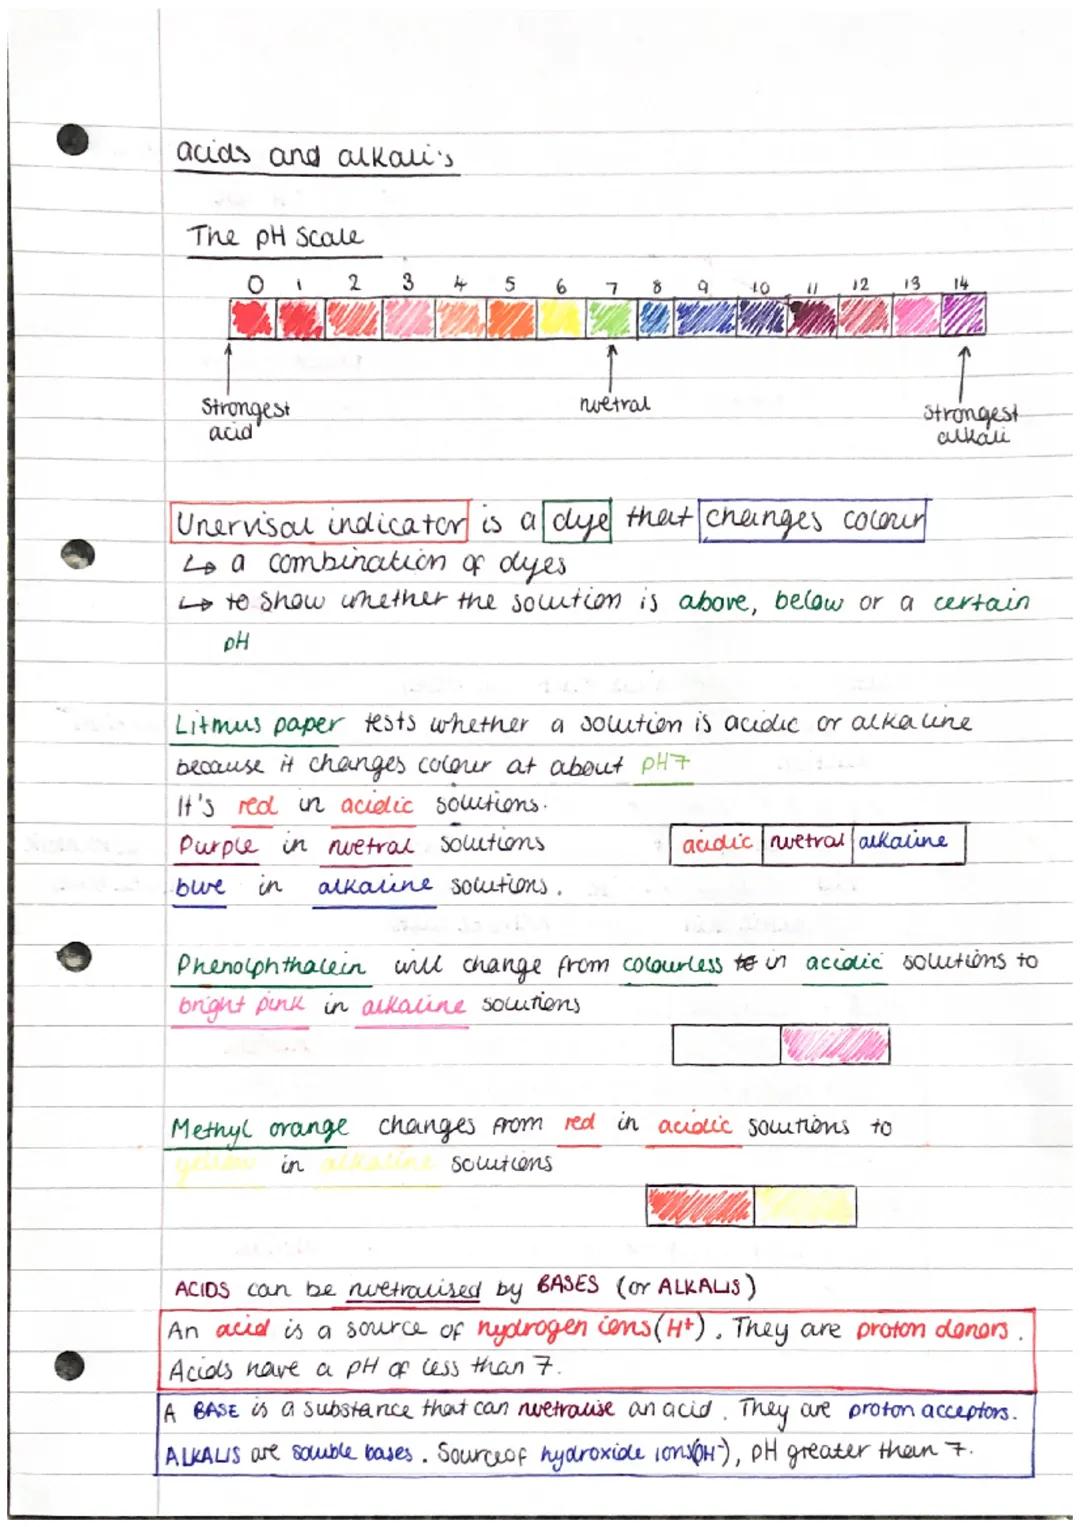 acids and alkali's
The pH Scale
0 1 2 3 4 5 6 7 8 9 10 11 12 13 14
Strongest
acid
nuetral
strongest
alkali
Unervisal indicator is a dye that changes colour
↳ a combination of dyes
↳ to show whether the solution is above, below or a certain
pH
Litmus paper tests whether a solution is acidic or alkaline
because it changes colour at about pH7
It's red in acidic solutions.
Purple in nuetral solutions
acidic nuetral alkaline
blue in alkaline solutions.
Phenolphthalein will change from colourless to in acidic solutions to
bright pink in alkaline solutions
Methyl orange changes from red in acidic solutions to
yellow in alkaline solutions
ACIDS can be nuetralised by BASES (or ALKALIS)
An acid is a source of hydrogen ions (H+). They are proton donors.
Acids have a pH of less than 7.
A BASE is a substance that can nuetralise an acid. They are proton acceptors.
ALKALIS are soluble bases. Source of hydroxide ions (OH-), pH greater than 7.